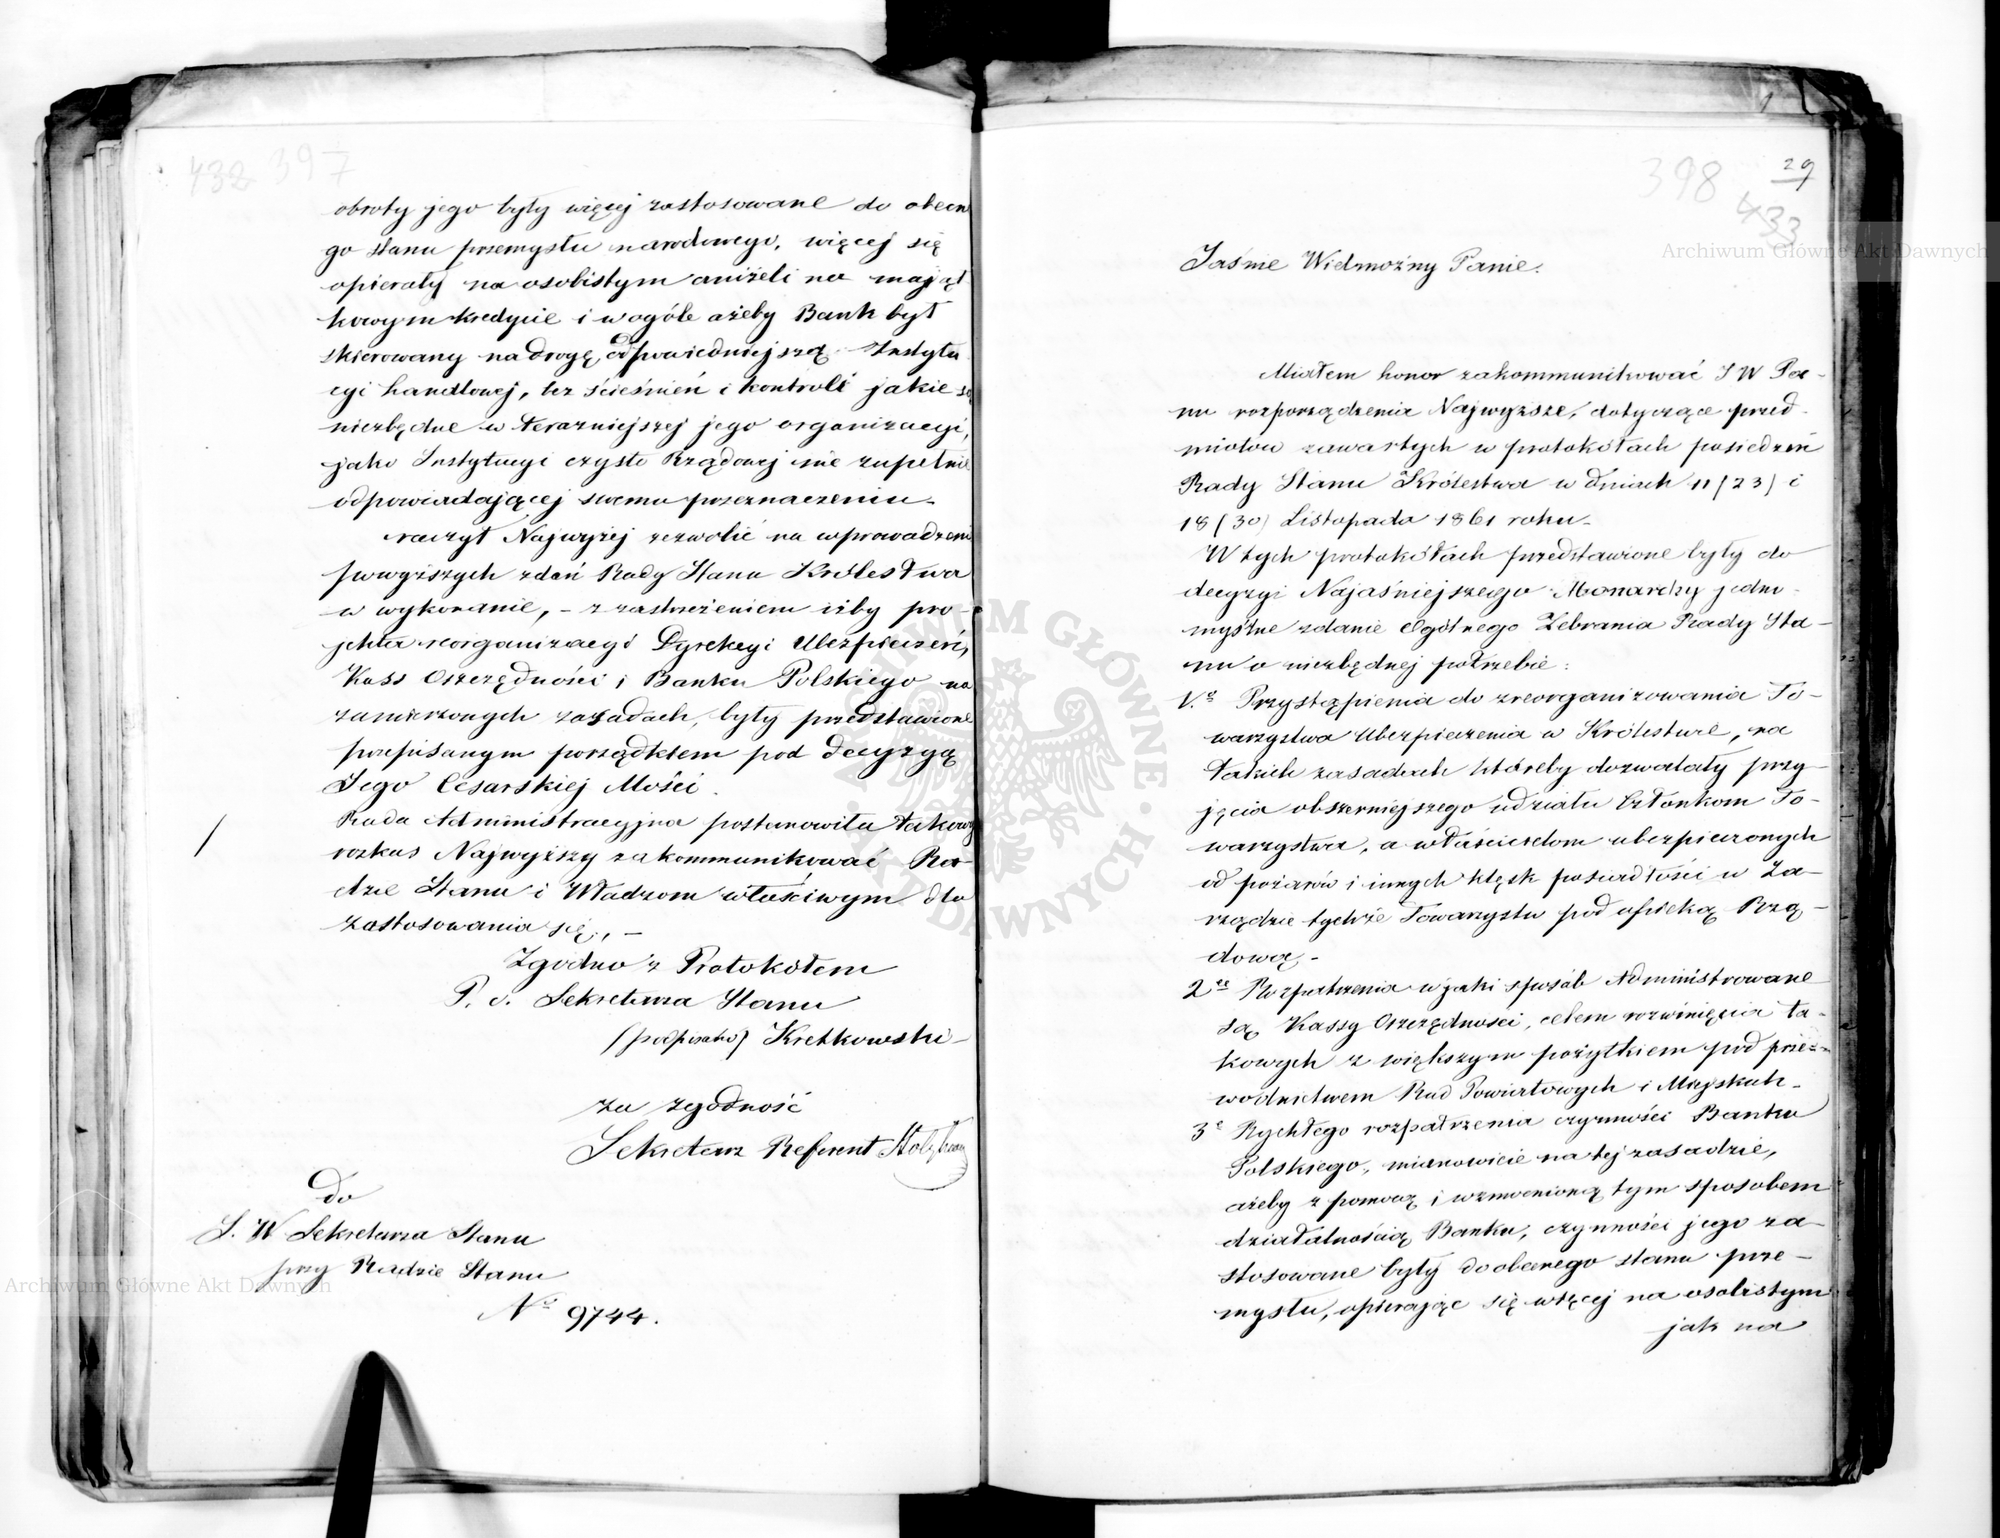 432 397
obroty jego były więcej zastosowane do obecne
go stanu przemysłu narodowego, więcej się
opierały na osobistym aniżeli na mająt
kowym kredycie i wogóle ażeby Bank był
skierowany na drogę odpowiedniejszą Instytu
cyi handlowej, bez ścieśnień i kontroli jakie są
niezbędne w teraźniejszej jego organizacyi,
jako Instytucyi czysto Rządowej nie zupełnie
odpowiadającej swemu przeznaczeniu.
raczył Najwyżej zezwolić na wprowadzenie
powyższych zdań Rady Stanu Królestwa
w wykonanie, – z zastrzeżeniem iżby pro-
jekta reorganizacyi Dyrekcyi Ubezpieczeń,
Kass Oszczędności i Banku Polskiego na
zamierzonych zasadach, były przedstawione
przepisanym porządkiem pod decyzyą
Jego Cesarskiej Mości.
Rada Administracyjna postanowiła takowy
rozkaz Najwyższy zakommunikować Ra-
dzie Stanu i Władzom właściwym dla
zastosowania się, –
Zgodno z Protokółem
P. o. Sekretarza Stanu
(podpisano) Kretkowski
Za zgodność
Sekretarz Referent
Do
J. W Sekretarza Stanu
przy Radzie Stanu
No 9744.
1
398 29
433
Jaśnie Wielmożny Panie.
Miałem honor zakommunikować JW Pa-
nu rozporządzenia Najwyższe, dotyczące przed-
miotów zawartych w protokółach posiedzeń
Rady Stanu Królestwa w dniach 11 (23) i
18 (30) Listopada 1861 roku.
W tych protokółach przedstawione były do
decyzyi Najaśniejszego Monarchy jedno-
myślne zdanie Ogólnego Zebrania Rady Sta-
nu o niezbędnej potrzebie:
1.e Przystąpienia do zreorganizowania To-
warzystwa Ubezpieczenia w Królestwie, na
takich zasadach któreby dozwalały przy-
jęcia obszerniejszego udziału Członkom To-
warzystwa, a właścicielom ubezpieczonych
od pożarów i innych klęsk posiadłości w Za-
rządzie tychże Towarzystw pod opieką Rzą-
dową,-
2re Rozpatrzenia w jaki sposób Administrowane
są Kassy Oszczędności, celem rozwinięcia ta-
kowych z większym pożytkiem pod prze-
wodnictwem Rad Powiatowych i Miejskich.
3e Rychłego rozpatrzenia czynności Banku
Polskiego, mianowicie na tej zasadzie,
ażeby z pomocą i wzmocnioną tym sposobem
działalnością Banku, czynności jego za-
stosowane były do obecnego stanu prze-
mysłu, opierając się więcej na osobistym
jak na
Archiwum Główne Akt Dawnych
Archiwum Główne Akt Dawnych
ARCHIWUM GŁÓWNE · AKT DAWNYCH ·